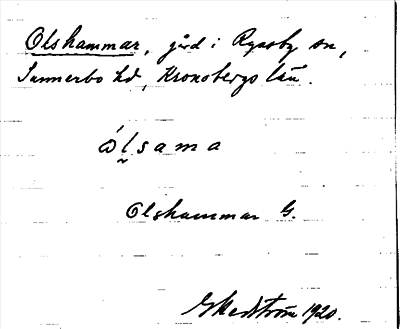 Olshammar, gård i Ryssby sn,
Sunnerbo hd, Kronobergs län.
ólsama
Olshammar G.
GHedström 1920.